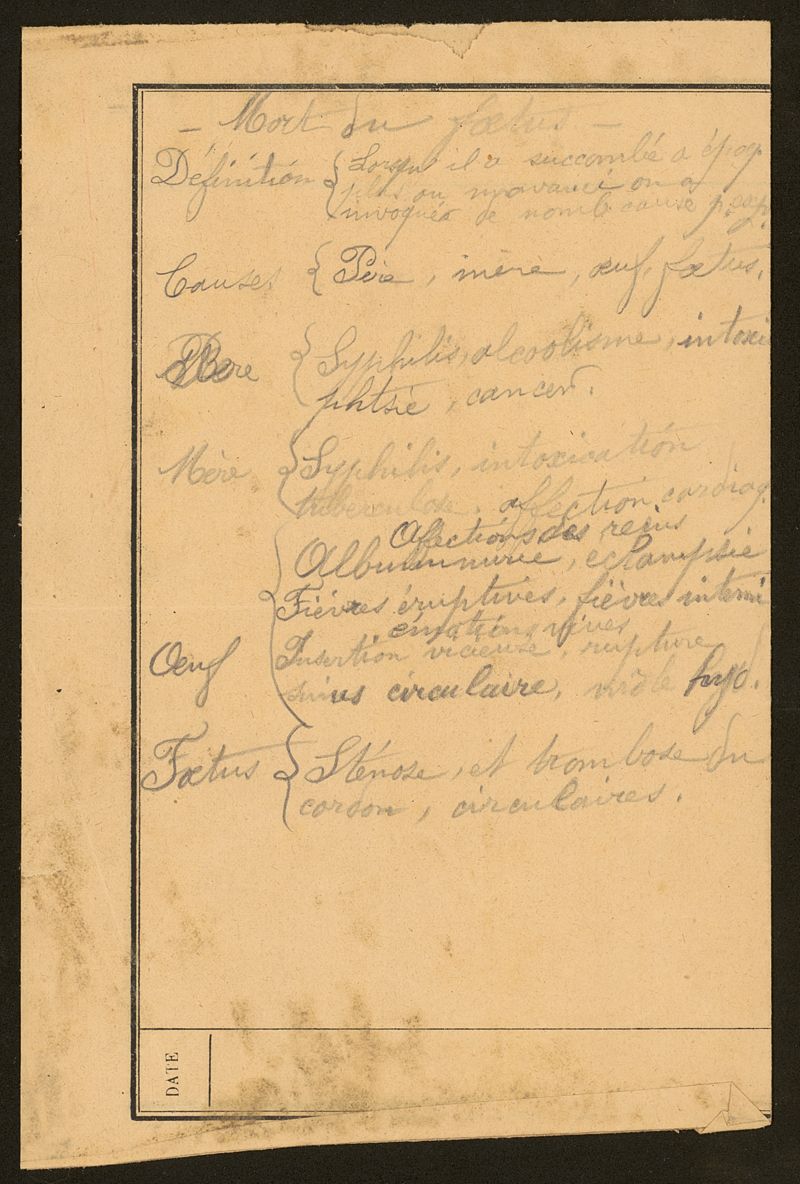 - Mort du fœtus -
Définition { Lorsqu'il a succombé a époq.
plus ou m. avancé on a
invoqués de nomb cause p. exp.
Causes { Père, mère, œuf, fœtus.
Père { Syphilis, alcoolisme, intoxi
phtsie, cancer.
Mère { Syphilis, intoxication
tuberculose, affection cardiaq.
Afections des reins
Albuminurie, eclampsie
Fièvres éruptives, fièvres intermi
émotions vives
Œuf { Insertion vicieuse, rupture
sinus circulaire, môle hyd.
Fœtus { Sténose, et trombose du
cordon, circulaires.
DATE